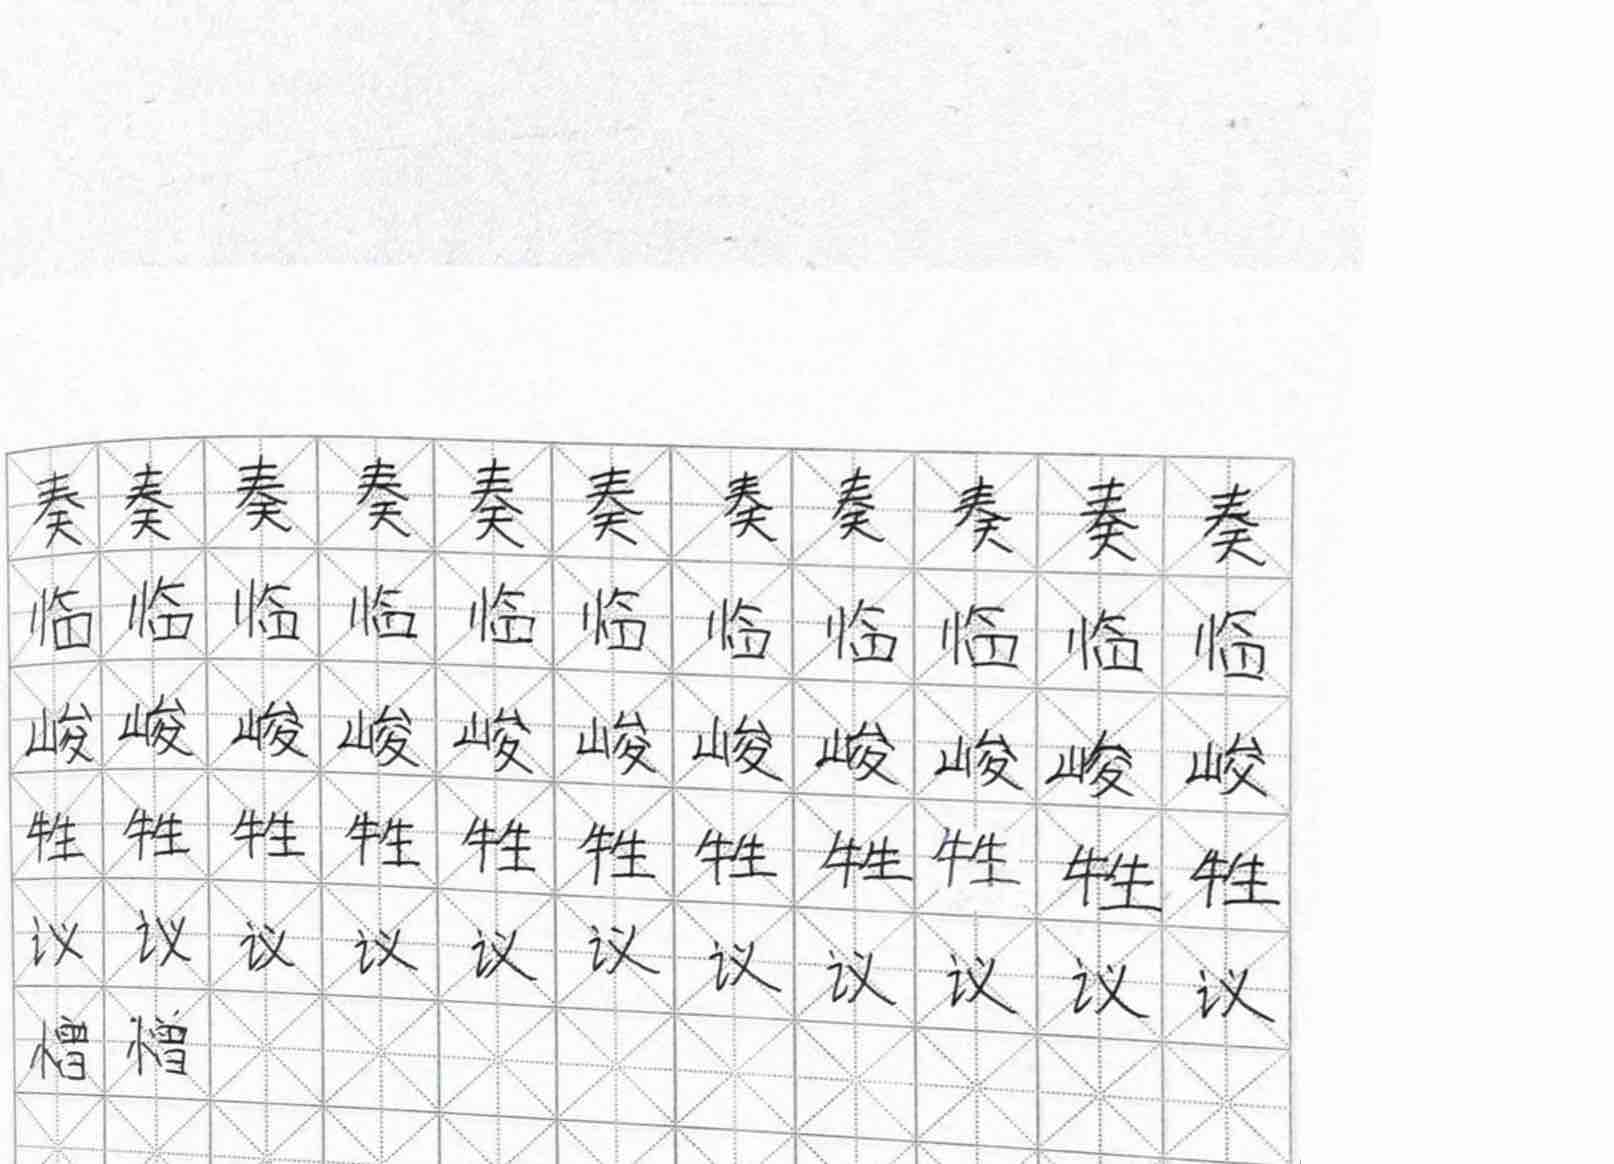 奏奏奏奏奏奏奏奏奏奏奏
临临临临临临临临临临临
峻峻峻峻峻峻峻峻峻峻峻
牲牲牲牲牲牲牲牲牲牲牲
议议议议议议议议议议议
憎憎